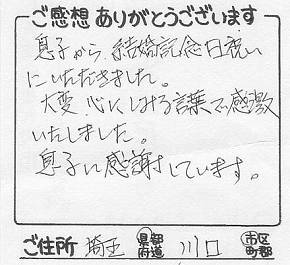 ご感想ありがとうございます
息子から、結婚記念日祝い
にいただきました。
大変、心にしみる言葉で感激
いたしました。
息子に感謝しています。
ご住所 埼玉 都道府県 川口 市区町郡